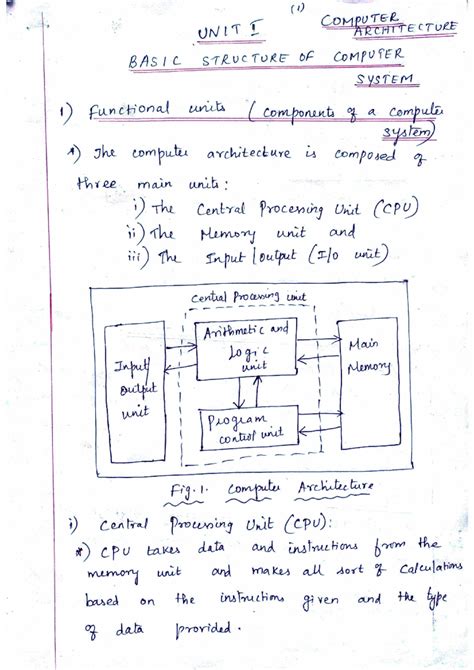 (1)
UNIT I
COMPUTER
ARCHITECTURE
BASIC STRUCTURE OF COMPUTER
SYSTEM
1) Functional units (components of a computer
system)
*) The computer architecture is composed of
three main units:
i) The Central Processing Unit (CPU)
ii) The Memory unit and
iii) The Input/Output (I/O unit)
Central Processing unit
Arithmetic and
Logic
unit
Input/
Output
unit
Main
Memory
Program
control unit
Fig.1. Computer Architecture
i) Central Processing Unit (CPU):
*) CPU takes data and instructions from the
memory unit and makes all sort of calculations
based on the instructions given and the type
of data provided.